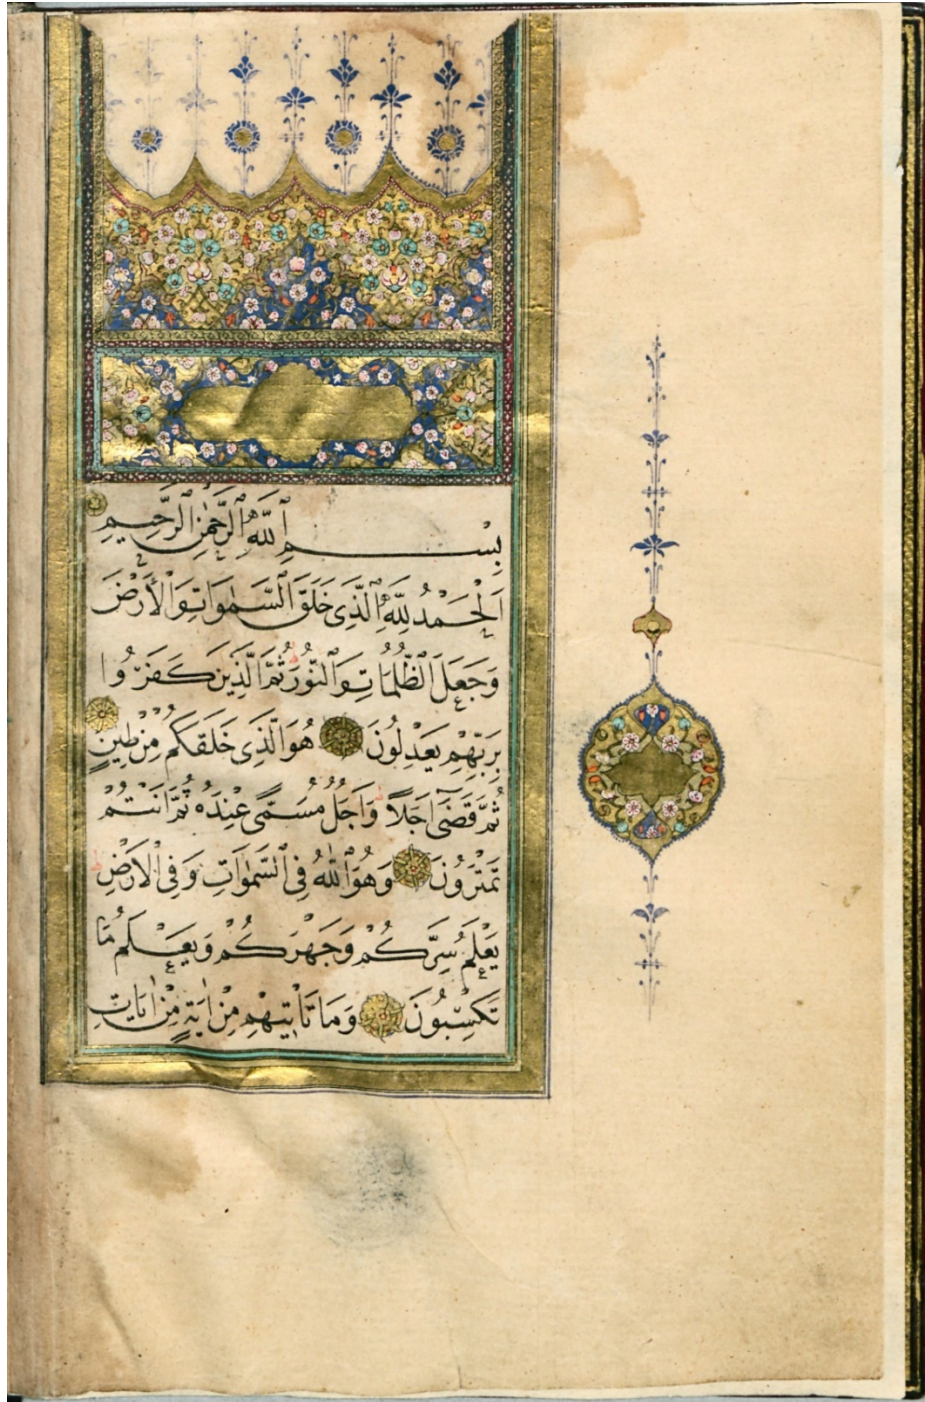 بِسْمِ اللَّهِ الرَّحْمٰنِ الرَّحِيمِ
اَلْحَمْدُ لِلَّهِ الَّذِى خَلَقَ السَّمٰوَاتِ وَالْاَرْضَ
وَجَعَلَ الظُّلُمَاتِ وَالنُّورَ ثُمَّ الَّذِينَ كَفَرُوا
بِرَبِّهِمْ يَعْدِلُونَ هُوَ الَّذِى خَلَقَكُمْ مِنْ طِينٍ
ثُمَّ قَضَى اَجَلاً وَاَجَلٌ مُسَمًّى عِنْدَهُ ثُمَّ اَنْتُمْ
تَمْتَرُونَ وَهُوَ اللّٰهُ فِى السَّمٰوَاتِ وَفِى الْاَرْضِ
يَعْلَمُ سِرَّكُمْ وَجَهْرَكُمْ وَيَعْلَمُ مَا
تَكْسِبُونَ وَمَا تَاْتِيهِمْ مِنْ اٰيَةٍ مِنْ اٰيَاتِ